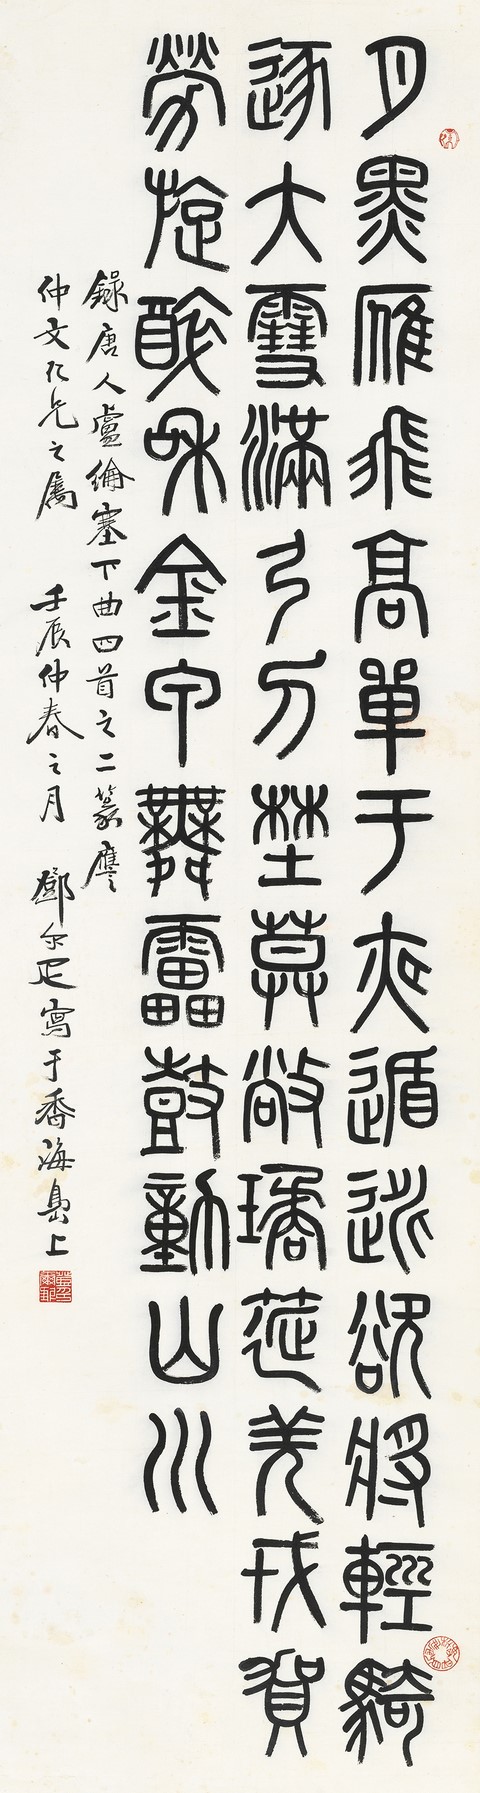 月黑雁飛高單于夜遁逃欲將輕騎
逐大雪滿弓刀埜幕敞璚筵羌戎賀
勞旋醉和金甲舞靁鼓動山川
錄唐人盧綸塞下曲四首之二篆應
仲文仁兄之屬 壬辰仲春之月 鄧尔疋寫于香海島上